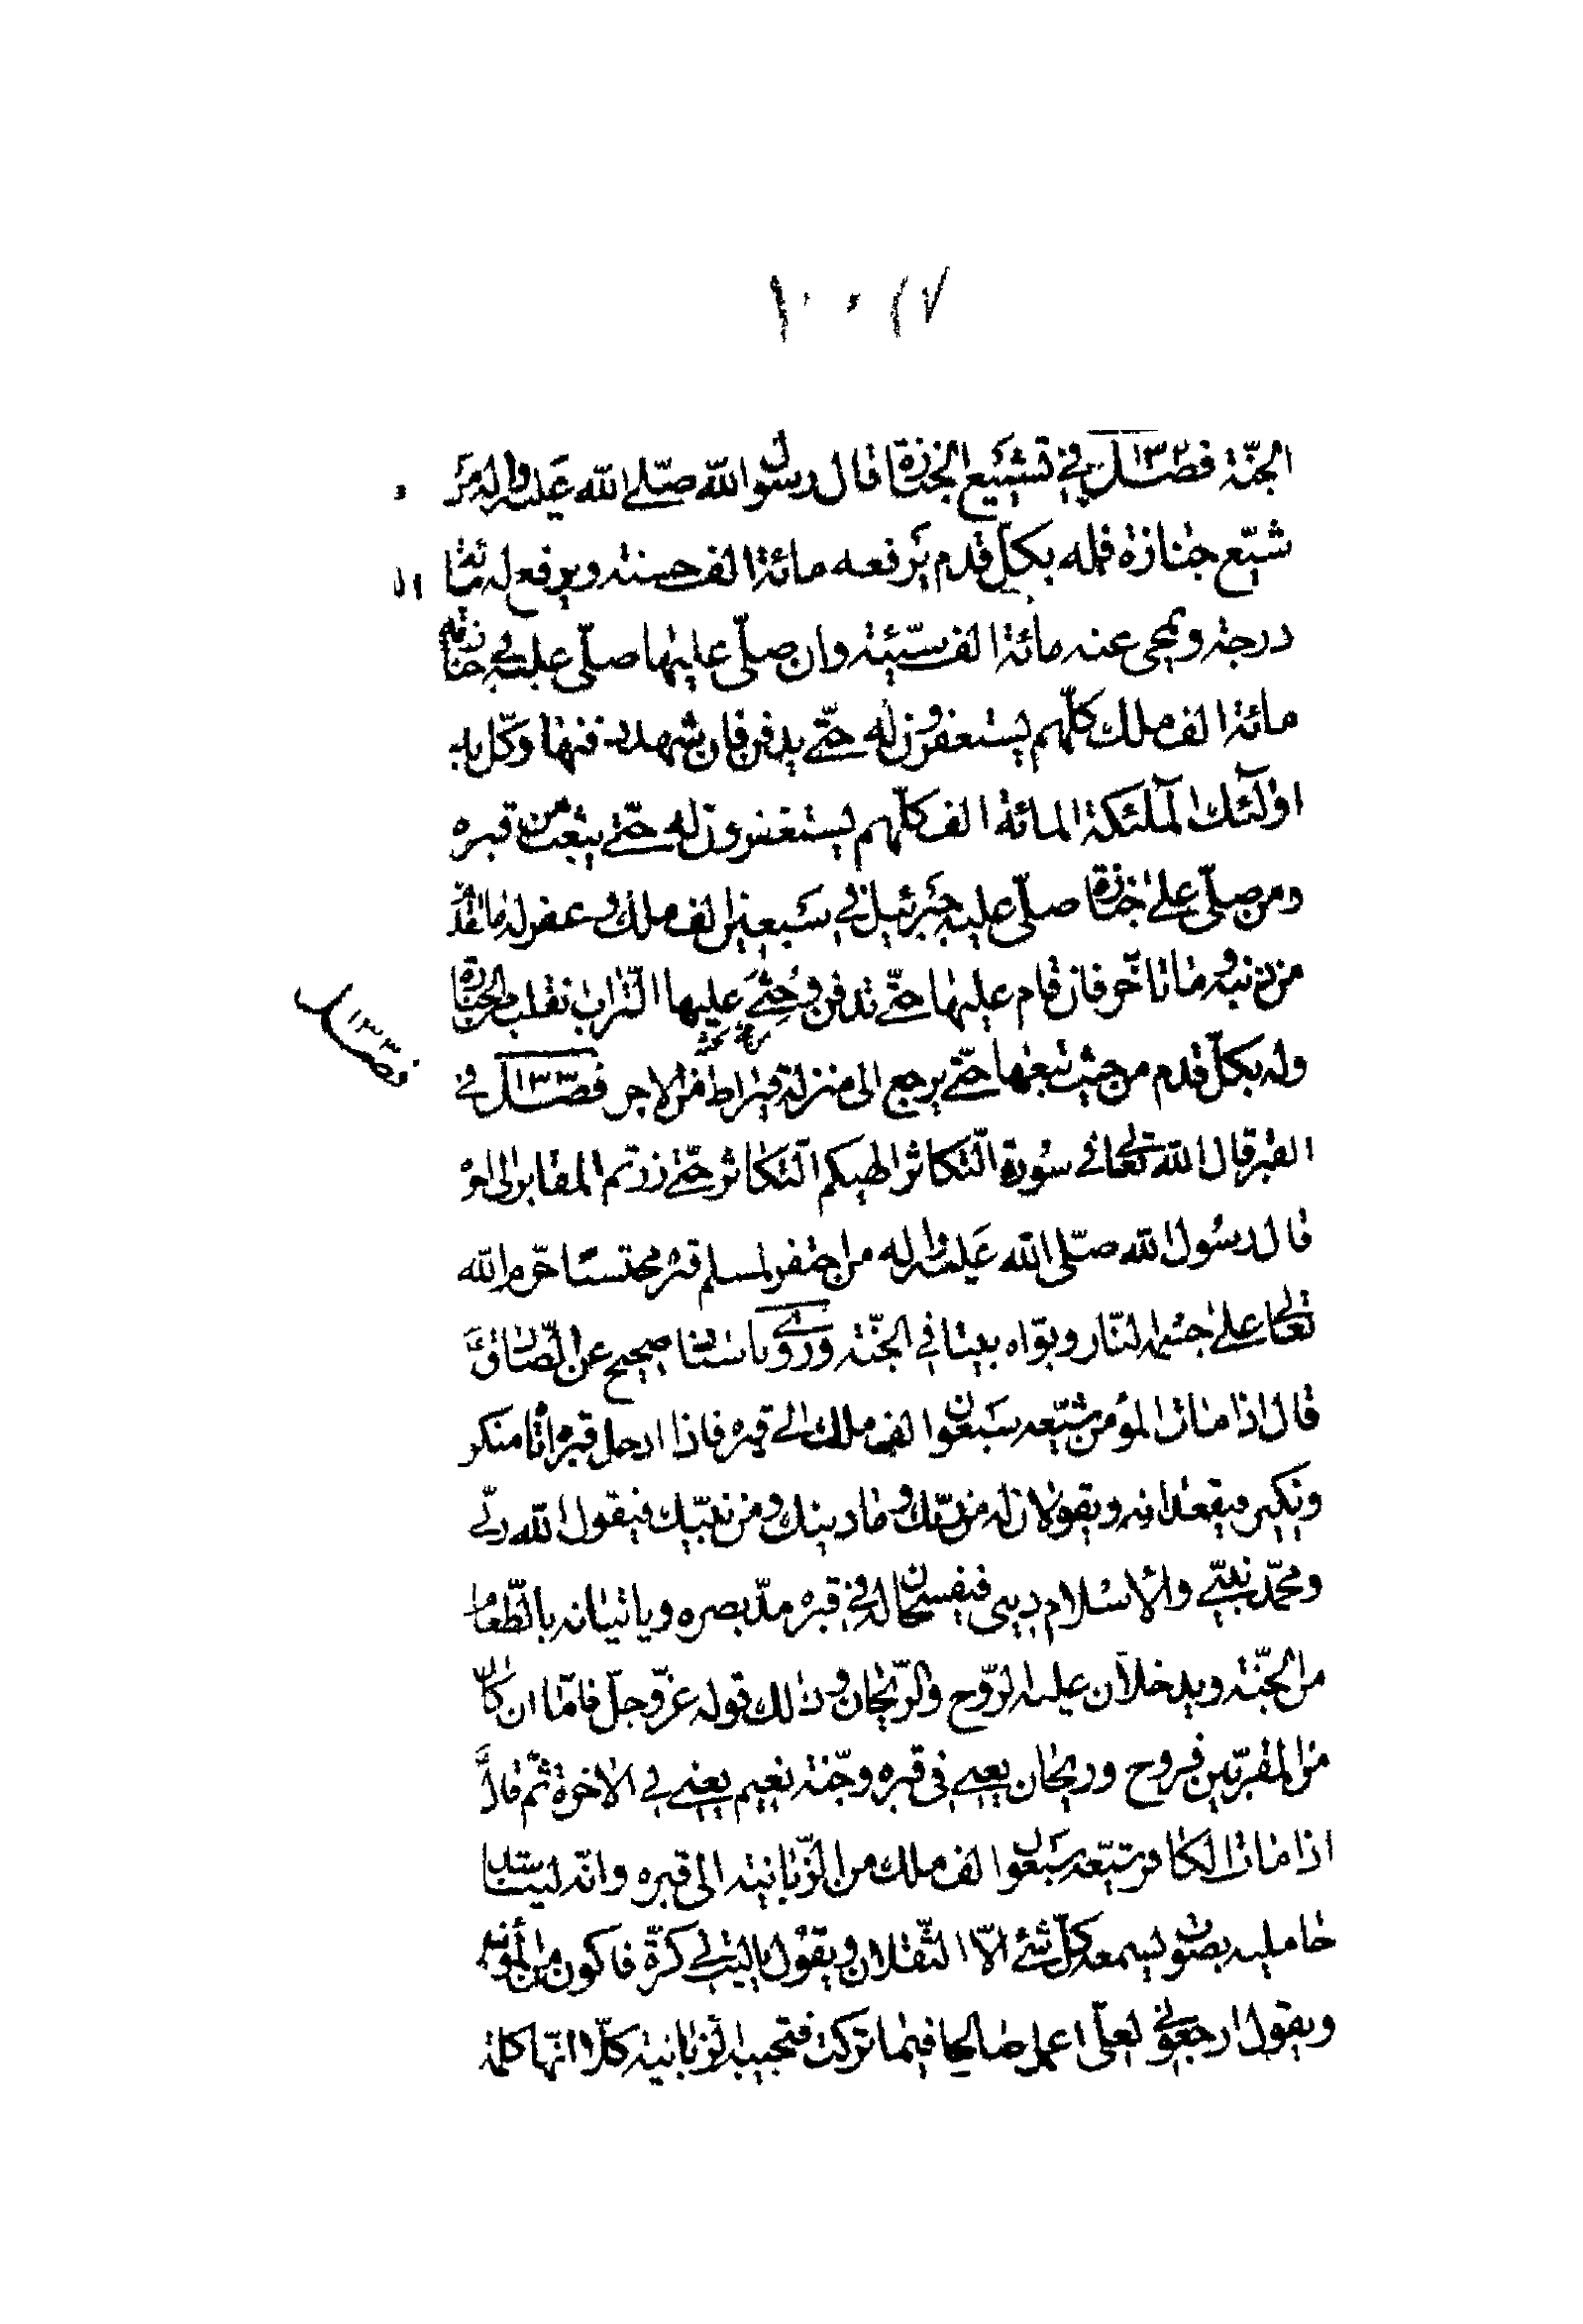 الجنّة فصل ١٣٢ في تشييع الجنازة قال رسول الله صلّى الله عليه واله من
شيّع جنازة فله بكلّ قدم يرفعه مائة الف حسنة ويرفع له مائة
درجة ويمحى عنه مائة الف سيّئة وان صلّى عليها صلّى عليه في جنازته
مائة الف ملك كلّهم يستغفرون له حتّى يدفن فان شهد دفنها وكّل به
اولئك الملئكة المائة الف كلّهم يستغفرون له حتّى يبعث من قبره
ومن صلّى على جنازة صلّى عليه جبرئيل في سبعين الف ملك وغفر له ما تقدّم
من ذنبه وما تاخّر فان قام عليها حتّى تدفن وحثى عليها التراب نقلب من الجنازة
وله بكلّ قدم من حيث تبعها حتّى يرجع الى منزله قيراط من الاجر فصل ١٣٣ في
فصل ١٣٣
القبر قال الله تعالى في سورة التكاثر الهيكم التكاثر حتّى زرتم المقابر الى اخره
قال رسول الله صلّى الله عليه واله من احتفر لمسلم قبرا محتسبا حرّم الله
تعالى على جسمه النّار وبوّاه بيتا في الجنّة وروى باسناد صحيح عن الصّادق
قال اذا مات المؤمن شيّعه سبعون الف ملك الى قبره فاذا ادخل قبره اتاه منكر
ونكير فيقعدانه ويقولان له من ربّك وما دينك ومن نبيّك فيقول الله ربّي
ومحمّد نبيّي والاسلام ديني فيفسحان له في قبره مدّ بصره وياتيانه بالطّعام
من الجنّة ويدخلان عليه الرّوح والرّيحان وذلك قوله عزّ وجلّ فامّا ان كان
من المقرّبين فروح وريحان يعني في قبره وجنّة نعيم يعني في الاخرة ثمّ قال
اذا مات الكافر شيّعه سبعون الف ملك من الزّبانية الى قبره وانّه ليناشد
حامليه بصوت يسمعه كلّ شئ الّا الثّقلان ويقول يا ليت لي كرّة فاكون من المؤمنين
ويقول ارجعوني لعلّي اعمل صالحا فيما تركت فتجيبه الزّبانية كلّا انّها كلمة